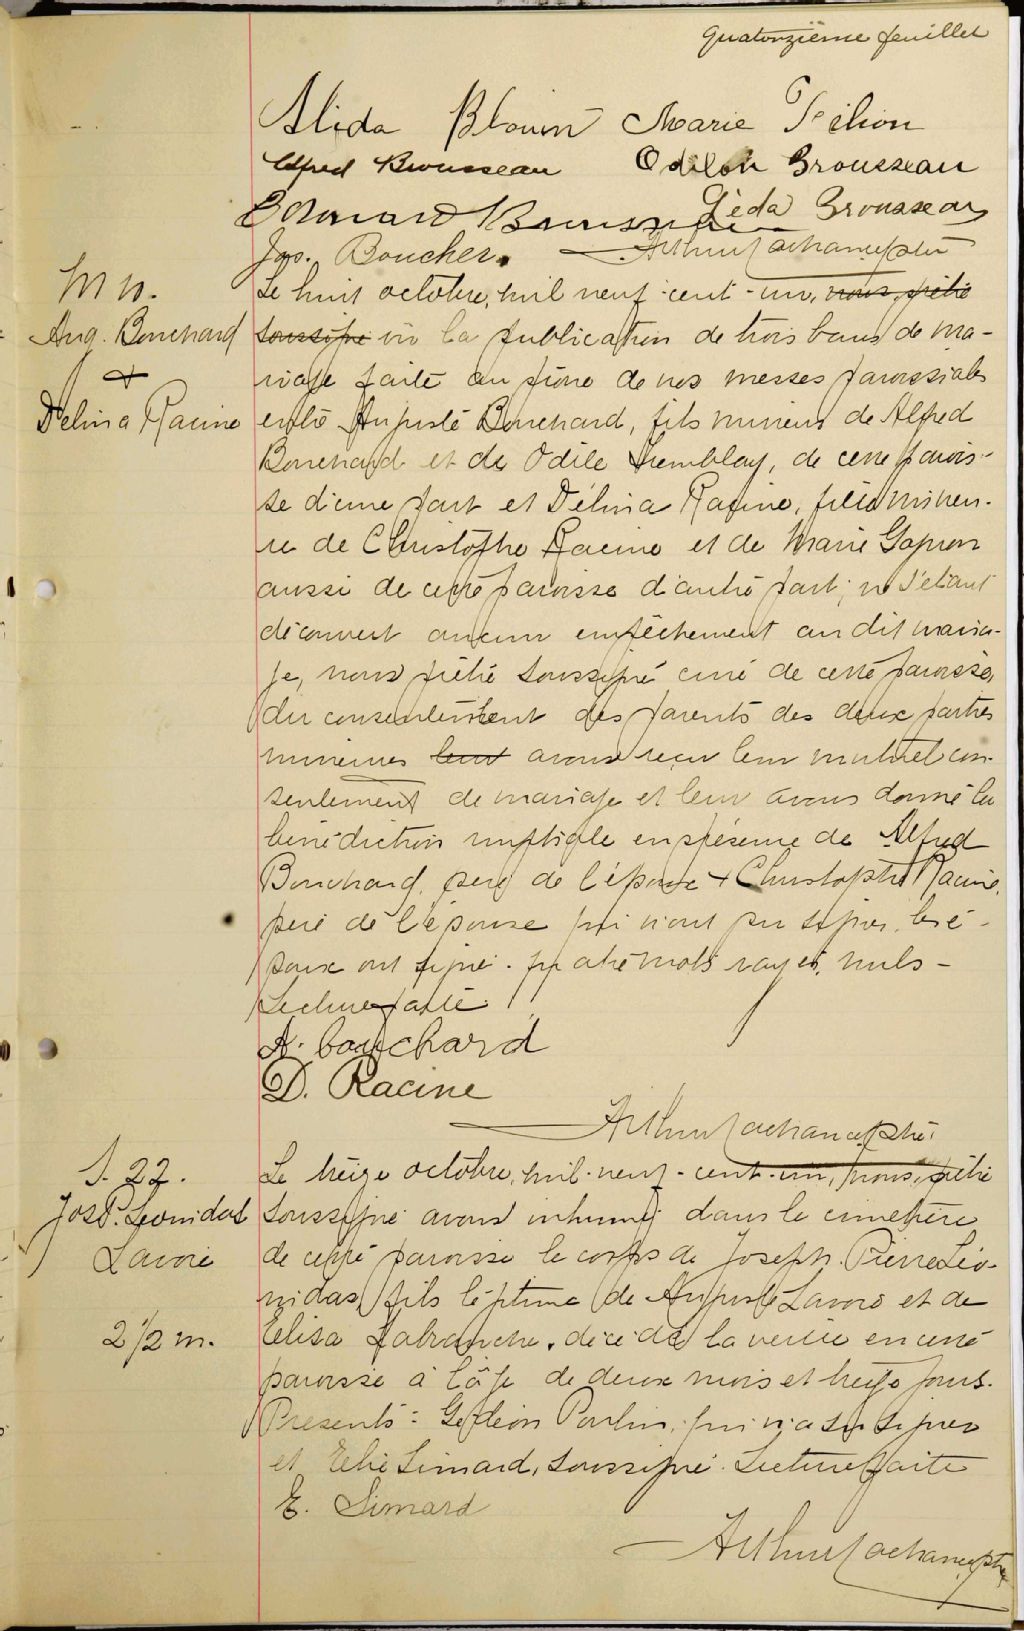 Quatorzième feuillet
Alida Blouin Marie Pélion
Alfred Brousseau Odilon Brousseau
Edouard Brousseau Léda Brousseau
Jos. Boucher. Arthur Lachance ptre
M 10.
Aug. Bouchard
+
Délina Racine
Le huit octobre, mil neuf-cent-un, nous, prêtre
soussigné vu la publication de trois bans de ma-
riage faite au prône de nos messes paroissiales
entre Auguste Bouchard, fils mineur de Alfred
Bouchard et de Odile Tremblay, de cette parois-
se d'une part et Délina Racine, fille mineu-
re de Christophe Racine et de Marie Gagnon
aussi de cette paroisse d'autre part; ne s'étant
découvert aucun empêchement au dit maria-
ge, nous prêtre soussigné curé de cette paroisse,
du consentement des parents des deux parties
mineures leur avons reçu leur mutuel con-
sentement de mariage et leur avons donné la
bénédiction nuptiale en présence de Alfred
Bouchard, père de l'époux + Christophe Racine,
père de l'épouse qui n'ont pu signer, les é-
poux ont signé. quatre mots rayés, nuls-
Lecture faite.
A. bouchard
D. Racine
Arthur Lachance ptre.
S. 22.
Jos. P. Leonidas
Lavoie
2 1/2 m.
Le treize octobre, mil-neuf-cent-un, nous, prêtre
soussigné avons inhumé dans le cimetière
de cette paroisse le corps de Joseph. Pierre Léo-
nidas, fils légitime de Auguste Lavoie et de
Elisa Labranche, décédé la veille en cette
paroisse à l'âge de deux mois et treize jours.
Présents: Gédéon Poulin, qui n'a su signer
et Elie Simard, soussigné. Lecture faite
E. Simard
Arthur Lachance ptre